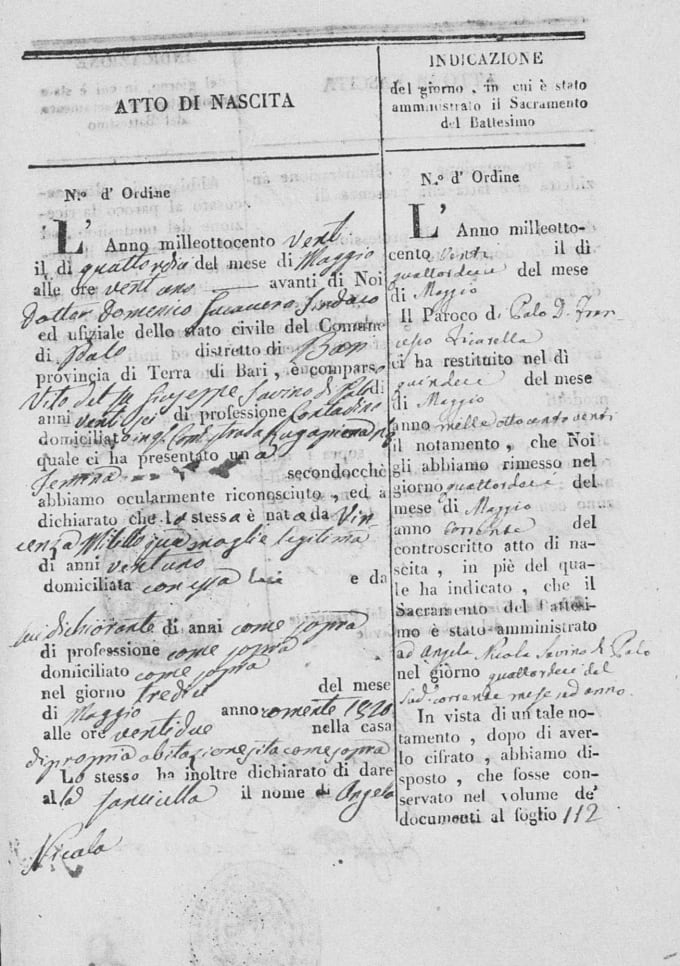 ATTO DI NASCITA
N.o d' Ordine
L' Anno milleottocento venti
il di quattordici del mese di Maggio
alle ore vent'uno avanti di Noi
Dottor Domenico Sindaco
ed ufiziale dello stato civile del Comune
di Palo distretto di Bari
provincia di Terra di Bari, è comparso
Vito del fu Giuseppe Savino di Palo di
anni venti sei di professione Contadino
domiciliato in strada
quale ci ha presentato una
Femina secondocchè
abbiamo ocularmente riconosciuto, ed a
dichiarato che la stessa è nata da Vin
cenza sua moglie legitima
di anni ventuno
domiciliata con essa lui e da
lui dichiarante di anni come sopra
di professsione come sopra
domiciliato come sopra
nel giorno tredici del mese
di Maggio anno corrente 1820
alle ore ventidue nella casa
di propria abitazione sita come sopra
Lo stesso ha inoltre dichiarato di dare
alla fanciulla il nome di Angela
Nicola
INDICAZIONE
del giorno, in cui è stato
amministrato il Sacramento
del Battesimo
N.o d' Ordine
L' Anno milleotto-
cento venti il di
quattordeci del mese
di Maggio
Il Paroco di Palo D. Fran
cesco
ci ha restituito nel dì
quindeci del mese
di Maggio
anno mille ottocento venti
il notamento, che Noi
gli abbiamo rimesso nel
giorno quattordeci del
mese di Maggio
anno corrente del
controscritto atto di na-
scita, in piè del qua-
le ha indicato, che il
Sacramento del Battesi-
mo è stato amministrato
ad Angela Nicola Savino di Palo
nel giorno quattordeci del
sud.o corrente mese ed anno.
In vista di un tale no-
tamento, dopo di aver-
lo cifrato, abbiamo di-
sposto, che fosse con-
servato nel volume de'
documenti al foglio 112